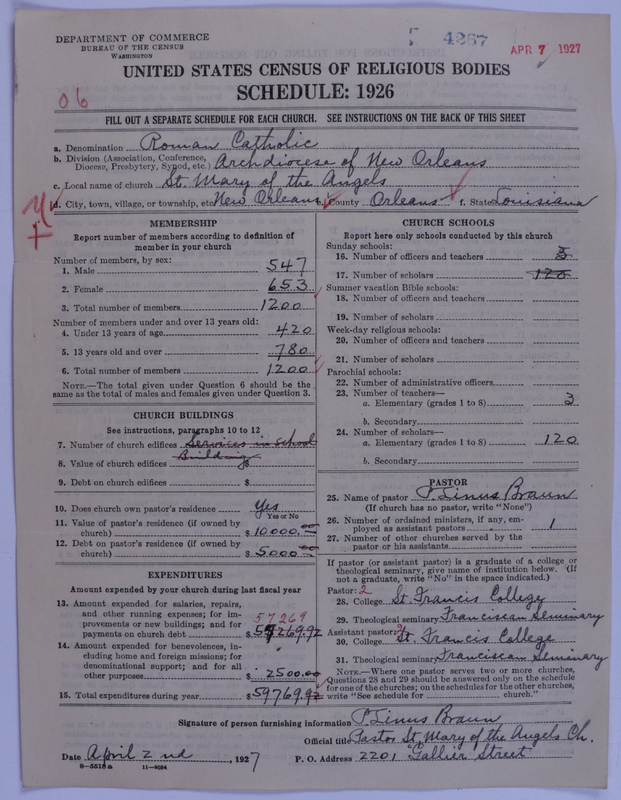 DEPARTMENT OF COMMERCE
BUREAU OF THE CENSUS
WASHINGTON
4267
APR 7 1927
UNITED STATES CENSUS OF RELIGIOUS BODIES
SCHEDULE: 1926
06
FILL OUT A SEPARATE SCHEDULE FOR EACH CHURCH. SEE INSTRUCTIONS ON THE BACK OF THIS SHEET
a. Denomination Roman Catholic
b. Division (Association, Conference, Diocese, Presbytery, Synod, etc.) Archdiocese of New Orleans
c. Local name of church St. Mary of the Angels
d. City, town, village, or township, etc. New Orleans County Orleans f. State Louisiana
MEMBERSHIP
Report number of members according to definition of
member in your church
Number of members, by sex:
1. Male 547
2. Female 653
3. Total number of members 1200
Number of members under and over 13 years old:
4. Under 13 years of age 420
5. 13 years old and over 780
6. Total number of members 1200
NOTE.—The total given under Question 6 should be the
same as the total of males and females given under Question 3.
CHURCH BUILDINGS
See instructions, paragraphs 10 to 12
7. Number of church edifices Services in School
Building
8. Value of church edifices $
9. Debt on church edifices $
10. Does church own pastor's residence Yes
Yes or No
11. Value of pastor's residence (if owned by
church) $10000.00
12. Debt on pastor's residence (if owned by
church) $5000.00
EXPENDITURES
Amount expended by your church during last fiscal year
13. Amount expended for salaries, repairs,
and other running expenses; for im-
provements or new buildings; and for 57269
payments on church debt $57269.92
14. Amount expended for benevolences, in-
cluding home and foreign missions; for
denominational support; and for all
other purposes 2500.00
15. Total expenditures during year $59769.92
CHURCH SCHOOLS
Report here only schools conducted by this church
Sunday schools:
16. Number of officers and teachers 3
17. Number of scholars 120
Summer vacation Bible schools:
18. Number of officers and teachers
19. Number of scholars
Week-day religious schools:
20. Number of officers and teachers
21. Number of scholars
Parochial schools:
22. Number of administrative officers
23. Number of teachers—
a. Elementary (grades 1 to 8) 3
b. Secondary
24. Number of scholars—
a. Elementary (grades 1 to 8) 120
b. Secondary
PASTOR
25. Name of pastor P. Linus Braun
(If church has no pastor, write "None")
26. Number of ordained ministers, if any, em-
ployed as assistant pastors 1
27. Number of other churches served by the
pastor or his assistants
If pastor (or assistant pastor) is a graduate of a college or
theological seminary, give name of institution below. (If
not a graduate, write "No" in the space indicated.)
Pastor: 2
28. College St. Francis College
29. Theological seminary Franciscan Seminary
Assistant pastor: 2
30. College St. Francis College
31. Theological seminary Franciscan Seminary
NOTE.—Where one pastor serves two or more churches,
Questions 28 and 29 should be answered only on the schedule
for one of the churches; on the schedules for the other churches,
write "See schedule for church."
Signature of person furnishing information P. Linus Braun
Official title Pastor St. Mary of the Angels Ch.
Date April 2nd, 1927 P. O. Address 2201 Gallier Street
8—5518a 11—9034